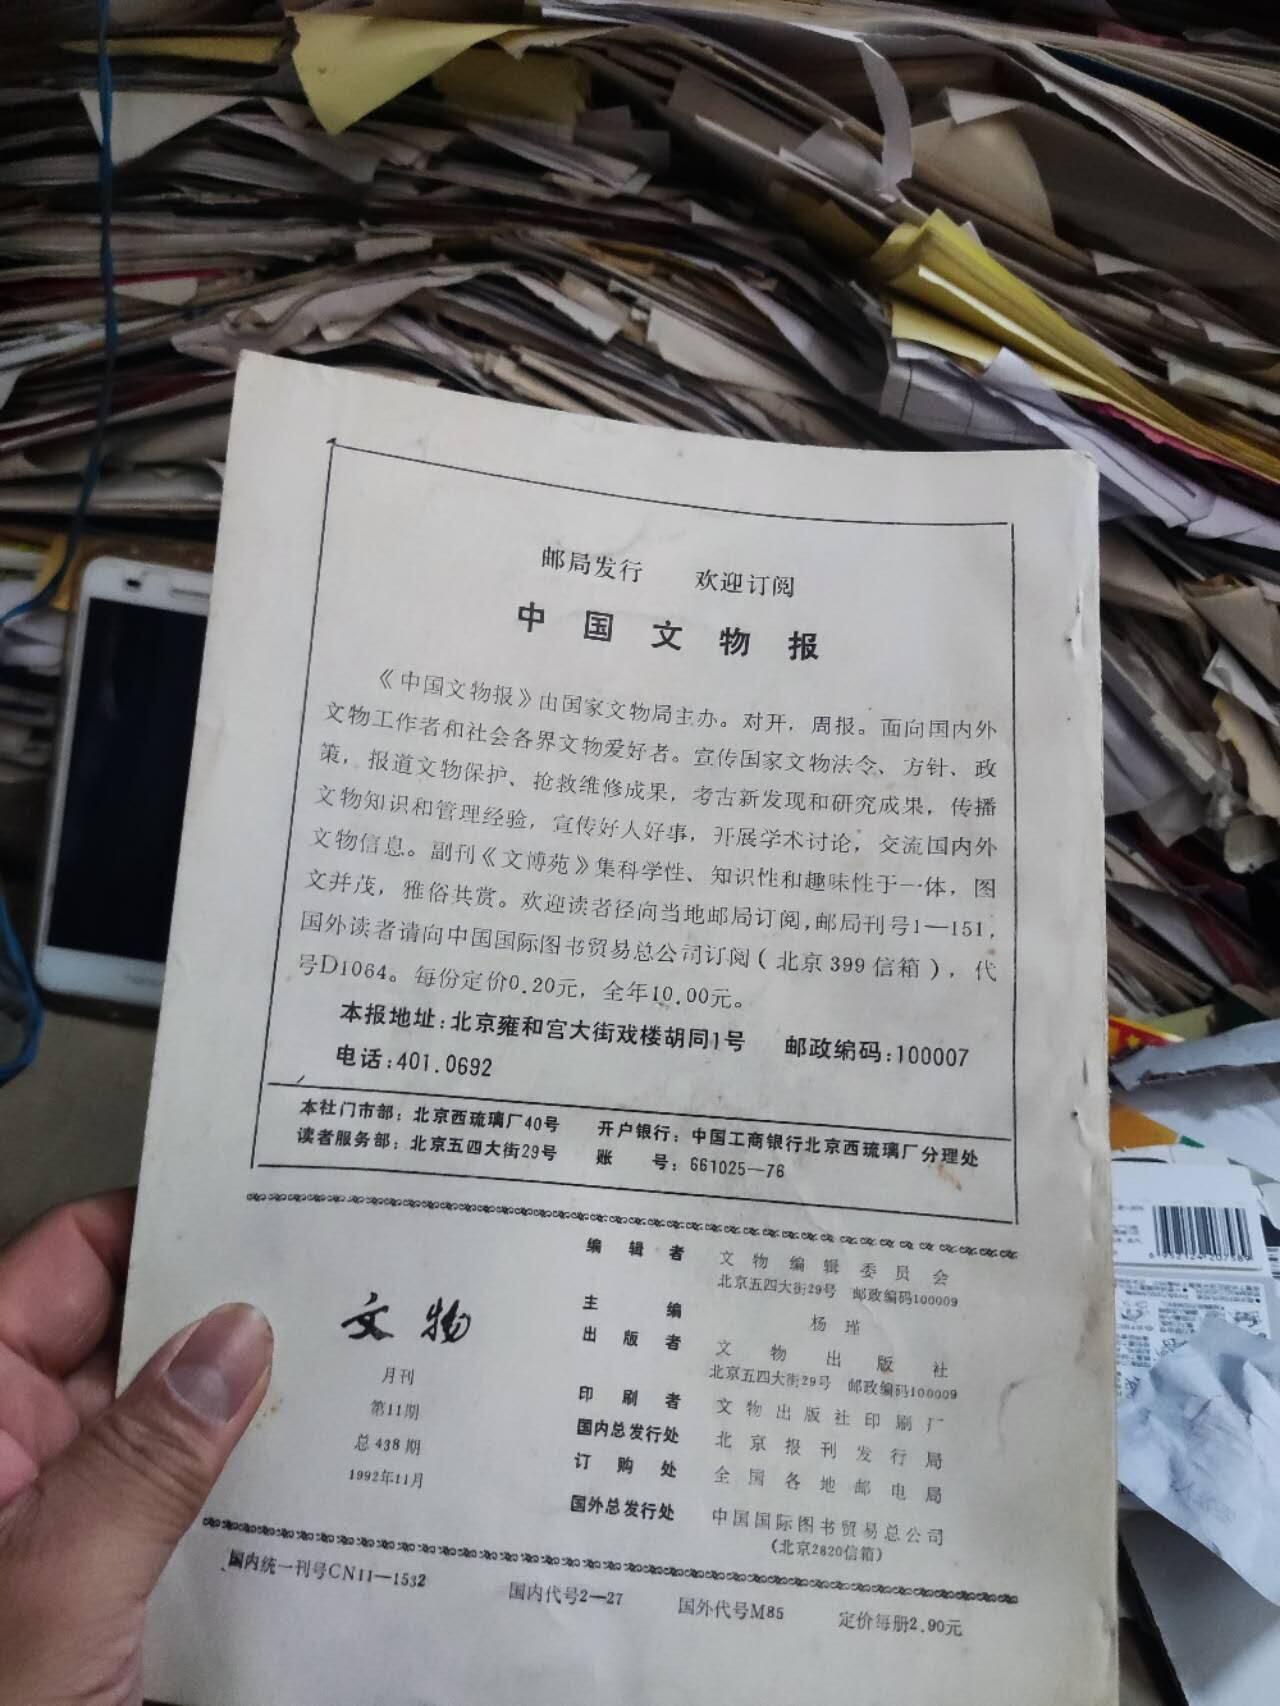 邮局发行 欢迎订阅
中国文物报
《中国文物报》由国家文物局主办。对开，周报。面向国内外
文物工作者和社会各界文物爱好者。宣传国家文物法令、方针、政
策，报道文物保护、抢救维修成果，考古新发现和研究成果，传播
文物知识和管理经验，宣传好人好事，开展学术讨论，交流国内外
文物信息。副刊《文博苑》集科学性、知识性和趣味性于一体，图
文并茂，雅俗共赏。欢迎读者径向当地邮局订阅，邮局刊号1—151，
国外读者请向中国国际图书贸易总公司订阅（北京399信箱），代
号D1064。每份定价0.20元，全年10.00元。
本报地址：北京雍和宫大街戏楼胡同1号 邮政编码：100007
电话：401.0692
本社门市部：北京西琉璃厂40号 开户银行：中国工商银行北京西琉璃厂分理处
读者服务部：北京五四大街29号 账号：661025—76
文物
月刊
第11期
总438期
1992年11月
编辑者 文物编辑委员会
北京五四大街29号 邮政编码100009
主编 杨瑾
出版者 文物出版社
北京五四大街29号 邮政编码100009
印刷者 文物出版社印刷厂
国内总发行处 北京报刊发行局
订购处 全国各地邮电局
国外总发行处 中国国际图书贸易总公司
（北京2820信箱）
国内统一刊号CN11—1532 国内代号2—27 国外代号M85 定价每册2.90元
6952124207589